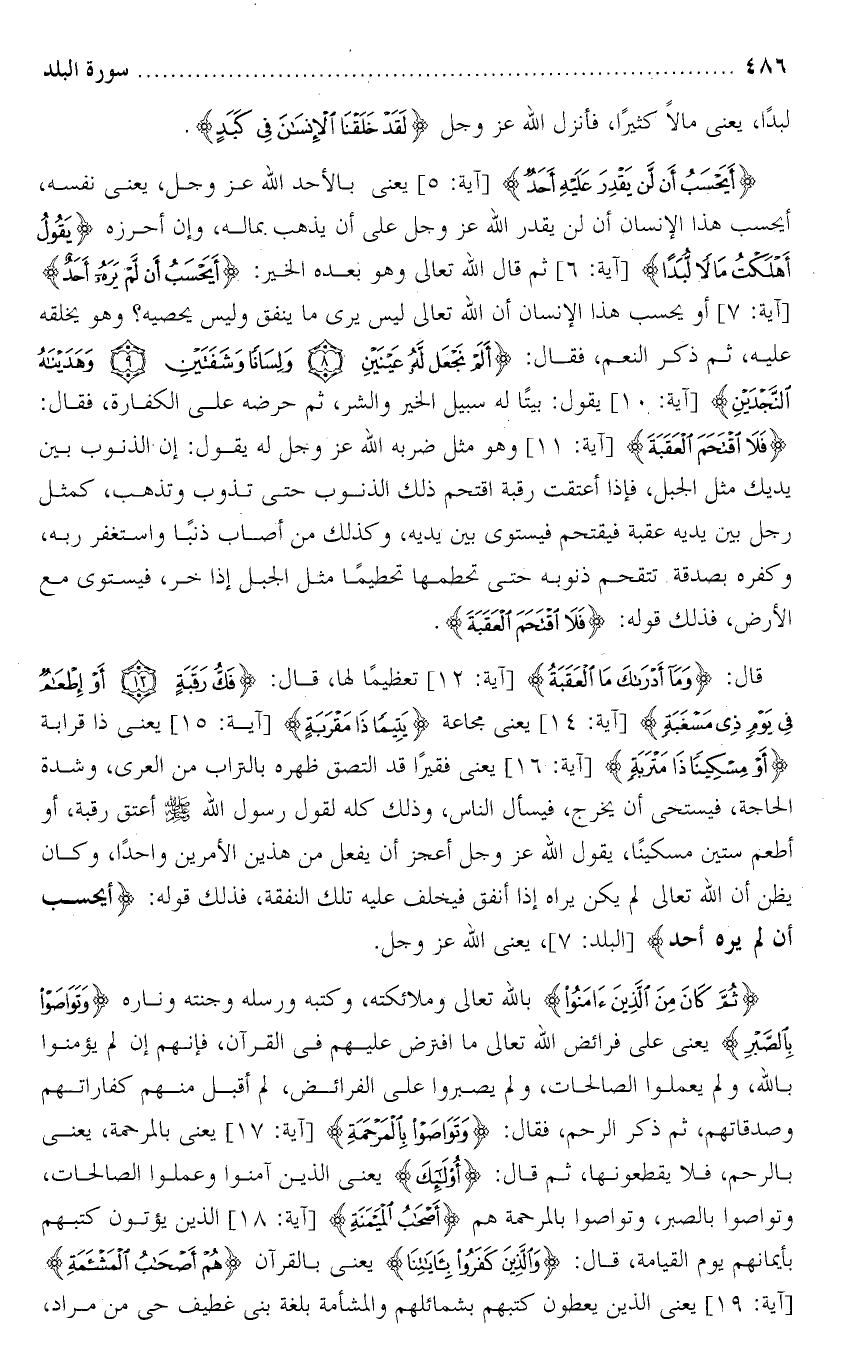 ٤٨٦ ........ سورة البلد
لبدًا، يعنى مالاً كثيرًا، فأنزل الله عز وجل ﴿لَقَدْ خَلَقْنَا ٱلْإِنسَٰنَ فِى كَبَدٍ﴾.
﴿أَيَحْسَبُ أَن لَّن يَقْدِرَ عَلَيْهِ أَحَدٌ﴾ [آية: ٥] يعنى بالأحد الله عز وجل، يعنى نفسه،
أيحسب هذا الإنسان أن لن يقدر الله عز وجل على أن يذهب بماله، وإن أحرزه ﴿يَقُولُ
أَهْلَكْتُ مَالًا لُّبَدًا﴾ [آية: ٦] ثم قال الله تعالى وهو بعده الخير: ﴿أَيَحْسَبُ أَن لَّمْ يَرَهُۥ أَحَدٌ﴾
[آية: ٧] أو يحسب هذا الإنسان أن الله تعالى ليس يرى ما ينفق وليس يحصيه؟ وهو يخلقه
عليه، ثم ذكر النعم، فقال: ﴿أَلَمْ نَجْعَل لَّهُۥ عَيْنَيْنِ (٨) وَلِسَانًا وَشَفَتَيْنِ (٩) وَهَدَيْنَٰهُ
ٱلنَّجْدَيْنِ﴾ [آية: ١٠] يقول: بيتًا له سبيل الخير والشر، ثم حرضه على الكفارة، فقال:
﴿فَلَا ٱقْتَحَمَ ٱلْعَقَبَةَ﴾ [آية: ١١] وهو مثل ضربه الله عز وجل له يقول: إن الذنوب بين
يديك مثل الجبل، فإذا أعتقت رقبة اقتحم ذلك الذنوب حتى تذوب وتذهب، كمثل
رجل بين يديه عقبة فيقتحم فيستوى بين يديه، وكذلك من أصاب ذنبًا واستغفر ربه،
وكفره بصدقة تتقحم ذنوبه حتى تحطمها تحطيمًا مثل الجبل إذا خر، فيستوى مع
الأرض، فذلك قوله: ﴿فَلَا ٱقْتَحَمَ ٱلْعَقَبَةَ﴾.
قال: ﴿وَمَآ أَدْرَىٰكَ مَا ٱلْعَقَبَةُ﴾ [آية: ١٢] تعظيمًا لها، قال: ﴿فَكُّ رَقَبَةٍ (١٣) أَوْ إِطْعَٰمٌ
فِى يَوْمٍ ذِى مَسْغَبَةٍ﴾ [آية: ١٤] يعنى مجاعة ﴿يَتِيمًا ذَا مَقْرَبَةٍ﴾ [آية: ١٥] يعنى ذا قرابة
﴿أَوْ مِسْكِينًا ذَا مَتْرَبَةٍ﴾ [آية: ١٦] يعنى فقيرًا قد التصق ظهره بالتراب من العرى، وشدة
الحاجة، فيستحى أن يخرج، فيسأل الناس، وذلك كله لقول رسول الله ﷺ أعتق رقبة، أو
أطعم ستين مسكينًا، يقول الله عز وجل أعجز أن يفعل من هذين الأمرين واحدًا، وكان
يظن أن الله تعالى لم يكن يراه إذا أنفق فيخلف عليه تلك النفقة، فذلك قوله: ﴿أيحسب
أن لم يره أحد﴾ [البلد: ٧]، يعنى الله عز وجل.
﴿ثُمَّ كَانَ مِنَ ٱلَّذِينَ ءَامَنُوا۟﴾ بالله تعالى وملائكته، وكتبه ورسله وجنته وناره ﴿وَتَوَاصَوْا۟
بِٱلصَّبْرِ﴾ يعنى على فرائض الله تعالى ما افترض عليهم فى القرآن، فإنهم إن لم يؤمنوا
بالله، ولم يعملوا الصالحات، ولم يصبروا على الفرائض، لم أقبل منهم كفاراتهم
وصدقاتهم، ثم ذكر الرحم، فقال: ﴿وَتَوَاصَوْا۟ بِٱلْمَرْحَمَةِ﴾ [آية: ١٧] يعنى بالمرحمة، يعنى
بالرحم، فلا يقطعونها، ثم قال: ﴿أُو۟لَٰٓئِكَ﴾ يعنى الذين آمنوا وعملوا الصالحات،
وتواصوا بالصبر، وتواصوا بالمرحمة هم ﴿أَصْحَٰبُ ٱلْمَيْمَنَةِ﴾ [آية: ١٨] الذين يؤتون كتبهم
بأيمانهم يوم القيامة، قال: ﴿وَٱلَّذِينَ كَفَرُوا۟ بِـَٔايَٰتِنَا﴾ يعنى بالقرآن ﴿هُمْ أَصْحَٰبُ ٱلْمَشْـَٔمَةِ﴾
[آية: ١٩] يعنى الذين يعطون كتبهم بشمائلهم والمشأمة بلغة بنى غطيف حى من مراد،